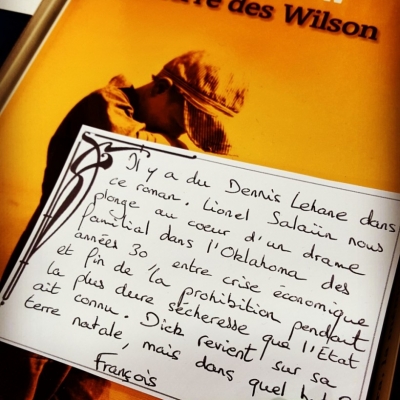 des Wilson
Il y a du Dennis Lehane dans
ce roman. Lionel Salaün nous
plonge au coeur d'un drame
familial dans l'Oklahoma des
années 30, entre crise économique
et fin de la prohibition pendant
la plus dure sécheresse que l'Etat
ait connu. Dick revient sur sa
terre natale, mais dans quel but ?
François